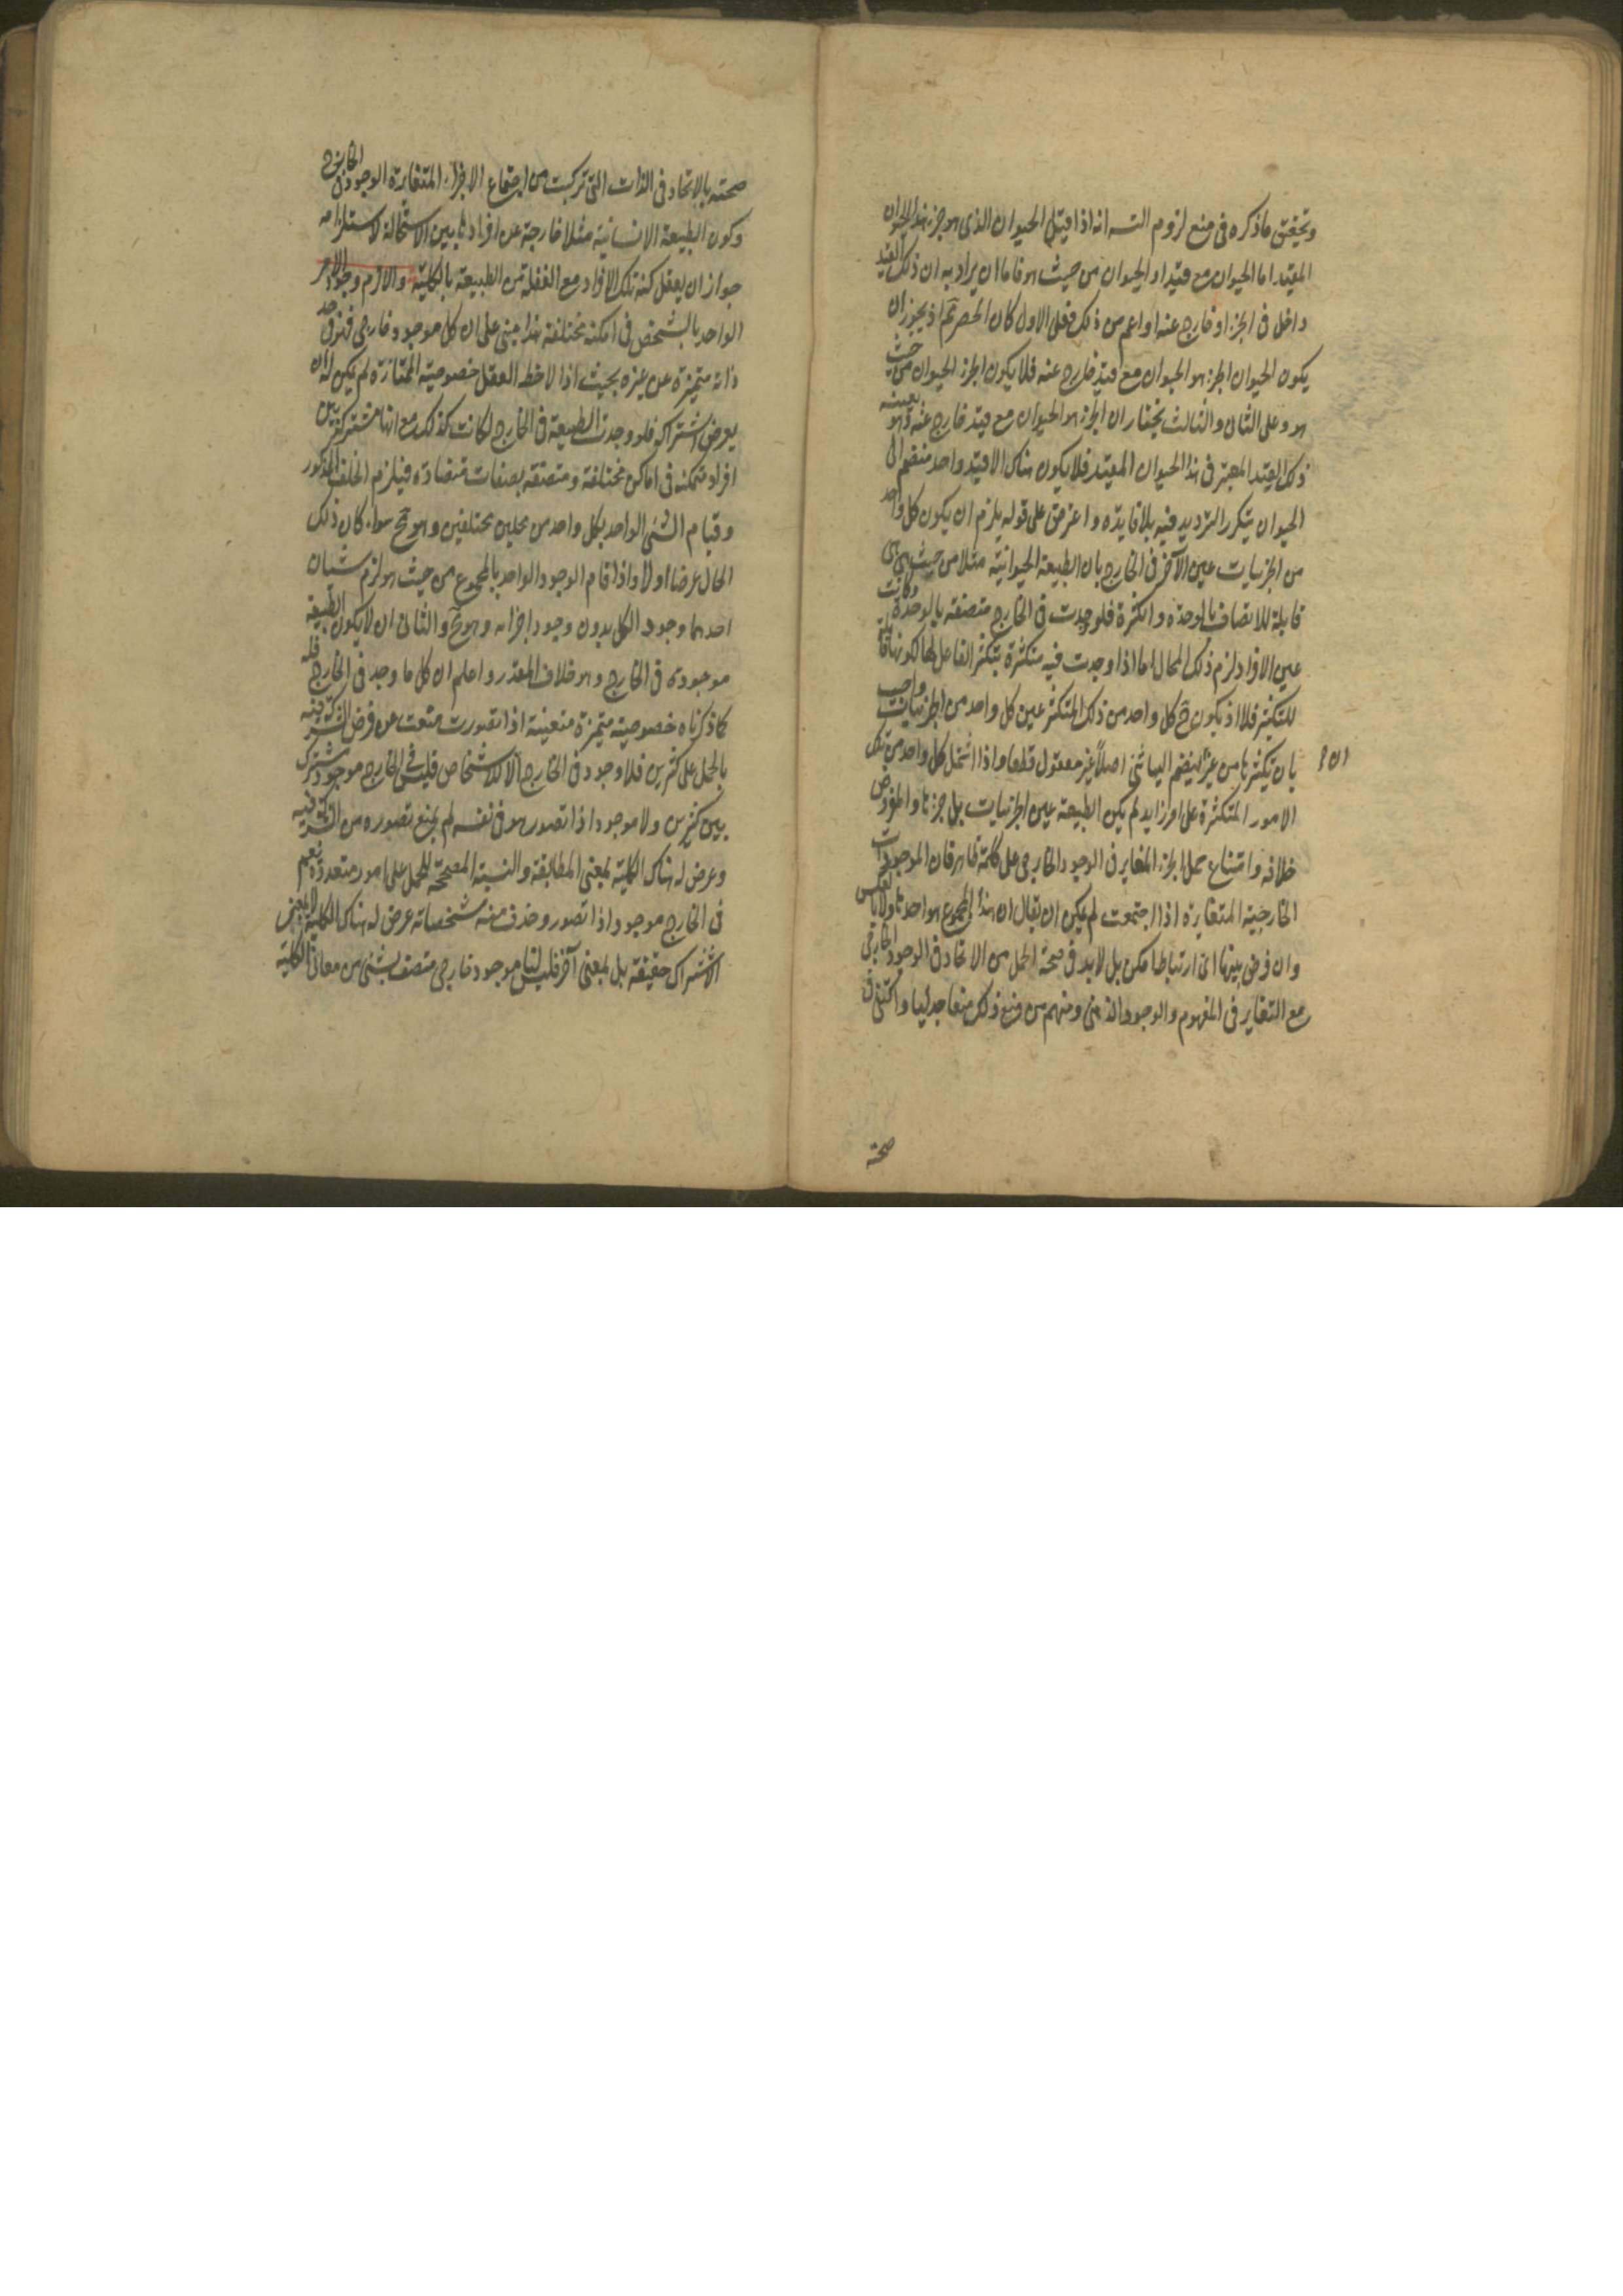 وتحقيق ما ذكره في منع لزوم التسـ انه اذا قيل الحيوان الذي هو جزء هذا الحيوان
المقيد اما الحيوان مع قيد او الحيوان من حيث هو فاما ان يراد به ان ذلك القيد
داخل في الجزء او خارج عنه او اعم من ذلك فعلى الاول كان الحصر ثم اذ يجوز ان
يكون الحيوان الجزء هو الحيوان مع قيد خارج عنه فلا يكون الجزء الحيوان من حيث
هو وعلى الثاني والثالث نختار ان الجزء هو الحيوان مع قيد خارج عنه وهو بعينه
ذلك القيد المعتبر في هذا الحيوان المقيد فلا يكون هناك الا قيد واحد منضم الى
الحيوان يتكرر الترديد فيه بلا فايدة واعترض على قوله يلزم ان يكون كل واحد
من الجزئيات عين الآخر في الخارج بان الطبيعة الحيوانية مثلا من حيث هي هي
قابلة للاتصاف بالوحدة والكثرة فلو وجدت في الخارج متصفة بالوحدة وكانت
عين الافراد لزم ذلك المحال اما اذا وجدت فيه متكثرة بتكثر الفاعل لها لكونها قابلة
للتكثير فلا اذ يكون ح كل واحد من ذلك المتكثر عين كل واحد من الجزئيات واجيب
بان تكثرها من غير ان ينضم اليها شئ اصلا غير معقول قطعا واذا اشتمل كل واحد من تلك
الامور المتكثرة على امر زايد لم يكن الطبيعة عين الجزئيات بل جزءها والمفروض
خلافه وامتناع حمل الجزء المغاير في الوجود الخارجي على كله ظاهر فان الموجودات
الخارجية المتغايرة اذا اجتمعت لم يكن ان يقال ان هذا المجموع هو احدها ولا بالعكس
وان فرض بينها اى ارتباط امكن بل لا بد في صحة الحمل من الاتحاد في الوجود الخارجي
مع التغاير في المفهوم والوجود الذهني ومنهم من منع ذلك منعا جدليا واكتفى في
صحته
صحته بالاتحاد في الذات التي تركبت من اجتماع الاجزاء المتغايرة الوجود في الخارج
وكون الطبيعة الانسانية مثلا خارجة عن افرادها بين الاستحالة لاستلزامه
جواز ان يعقل كنه تلك الافراد مع الغفلة عن الطبيعة بالكلية والازم وجود الامر
الواحد بالشخص في امكنة مختلفة هذا مبني على ان كل موجود خارجي فهو في حد
ذاته متميزة عن غيره بحيث اذا لاحظه العقل خصوصيته الممتازة لم يكن له ان
يعرض اشتراكه فلو وجدت الطبيعة في الخارج لكانت كذلك مع انها مشتركة بين
افراد متمكنة في اماكن مختلفة ومتصفة بصفات متضادة فيلزم الخلف المذكور
وقيام الشئ الواحد بكل واحد من محلين مختلفين وهو مح سواء كان ذلك
الحال عرضا او لا واذا قام الوجود الواحد بالمجموع من حيث هو لزم شيئان
احدهما وجود الكل بدون وجود اجزائه وهو مح والثاني ان لا يكون الطبيعة
موجودة في الخارج وهو خلاف المقدر واعلم ان كل ما وجد في الخارج فله
كما ذكرناه خصوصية متميزة متعينة اذا تصورت منعت عن فرض الشركة فيه
بالحمل على كثيرين فلا وجود في الخارج الا للاشخاص فليس في الخارج موجود مشترك
بين كثيرين ولا موجود اذا تصور هو في نفسه لم يمنع تصوره من الشركة فيه
وعرض له هناك الكلية بمعنى المطابقة والنسبة المصححة للحمل على امور متعددة نعم
في الخارج موجود اذا تصور وحذف منه مشخصاته عرض له هناك الكلية لا بمعنى
الاشتراك حقيقة بل بمعنى آخر فليس لنا موجود خارجي متصف بشئ من معاني الكلية